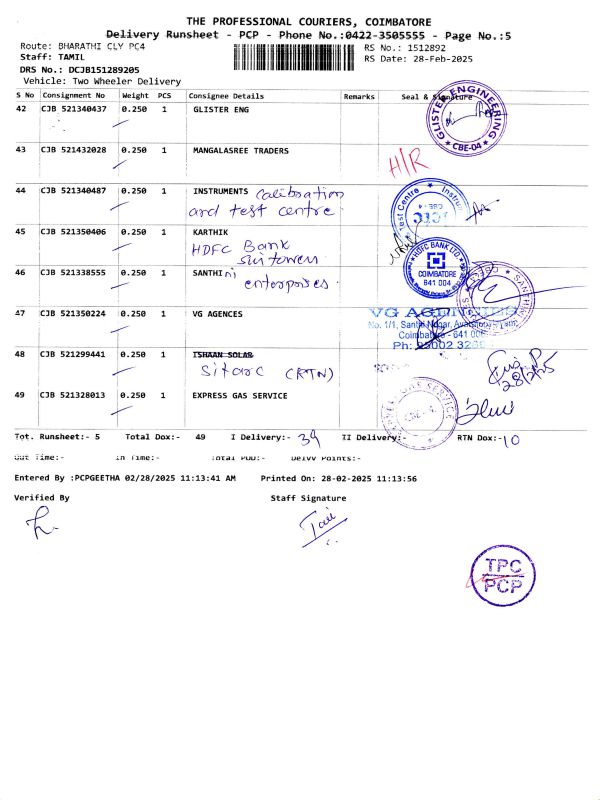 THE PROFESSIONAL COURIERS, COIMBATORE
Delivery Runsheet - PCP - Phone No.:0422-3505555 - Page No.:5
Route: BHARATHI CLY PC4
RS No.: 1512892
Staff: TAMIL
RS Date: 28-Feb-2025
DRS No.: DCJB151289205
Vehicle: Two Wheeler Delivery
S No Consignment No Weight PCS Consignee Details Remarks Seal & Signature
42 CJB 521340437 0.250 1 GLISTER ENG
GLISTER ENGINEERING
CBE-04
43 CJB 521432028 0.250 1 MANGALASREE TRADERS
H/R
44 CJB 521340487 0.250 1 INSTRUMENTS Calibration
and test centre
Test Centre * Instru
CBE - 4
45 CJB 521350406 0.250 1 KARTHIK
HDFC Bank
HDFC BANK LTD.
COIMBATORE
641 004
46 CJB 521338555 0.250 1 SANTHI ni
enterprises
47 CJB 521350224 0.250 1 VG AGENCES
VG AGENCIES
No. 1/1, Santhi Nagar,
Coimbatore - 641 006
48 CJB 521299441 0.250 1 ISHAAN SOLAR
Sitarc (RTN)
28/2/25
49 CJB 521328013 0.250 1 EXPRESS GAS SERVICE
GAS SERVICE
CBE-4.
Tot. Runsheet:- 5 Total Dox:- 49 I Delivery:- 39 II Delivery:- RTN Dox:- 10
Out Time:- In Time:- Total POD:- Delvy Points:-
Entered By :PCPGEETHA 02/28/2025 11:13:41 AM Printed On: 28-02-2025 11:13:56
Verified By Staff Signature
TPC
PCP